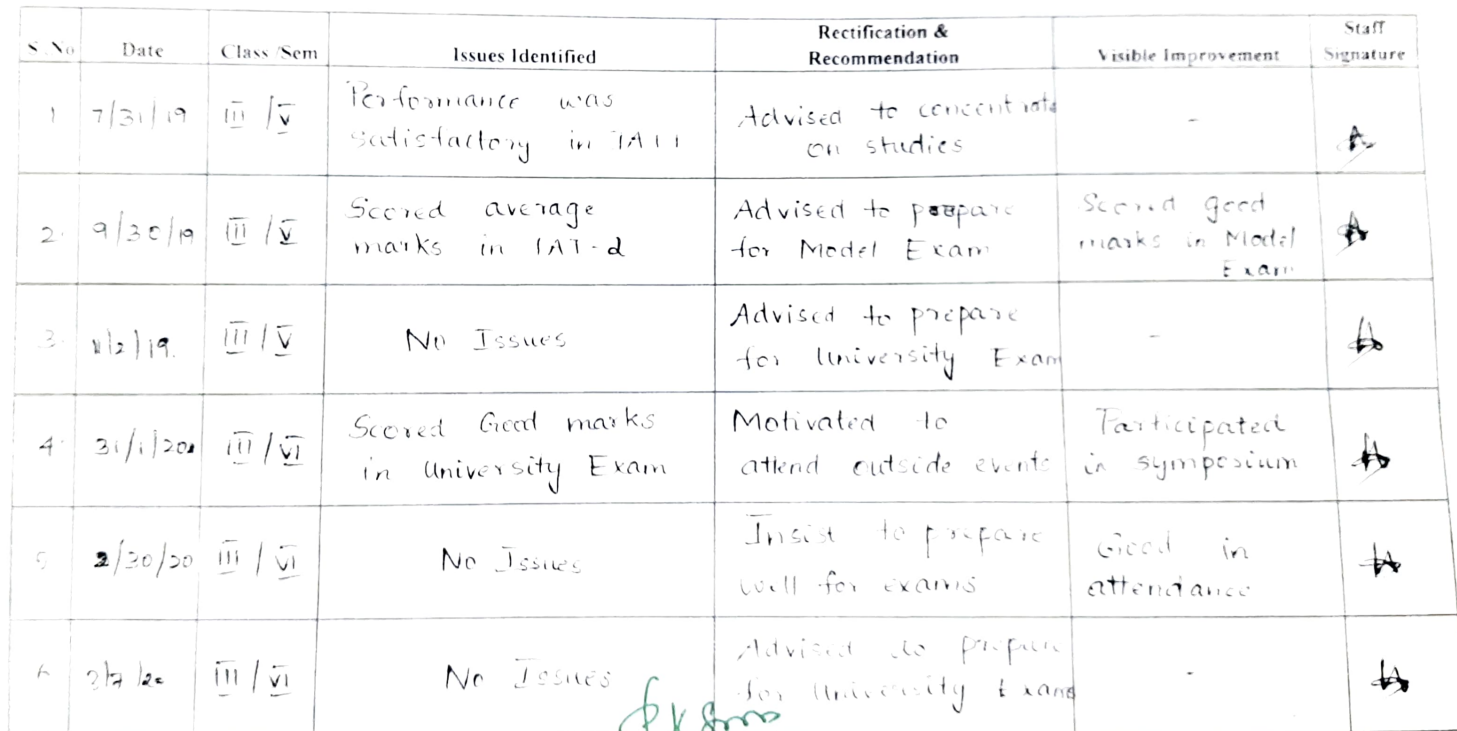 S.No Date Class /Sem Issues Identified Rectification & Recommendation Visible Improvement Staff Signature
1 7/31/19 III / V Performance was satisfactory in IAT 1 Advised to concentrate on studies -
2. 9/30/19 III / V Scored average marks in IAT-2 Advised to prepare for Model Exam Scored good marks in Model Exam
3. 11/2/19. III / V No Issues Advised to prepare for University Exam -
4. 31/1/20 III / VI Scored Good marks in University Exam Motivated to attend outside events Participated in symposium
5 2/30/20 III / VI No Issues Insist to prepare well for exams Good in attendance
6 III / VI No Issues Advised to prepare for University Exams -